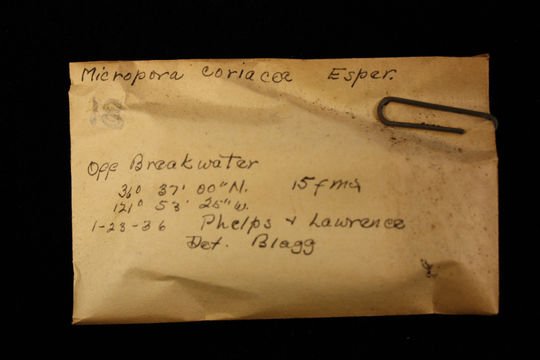 Micropora coriacea Esper.
Off Breakwater
36° 37' 00" N. 15 fms
121° 53' 25" W.
1-23-36 Phelps & Lawrence
Det. Blagg